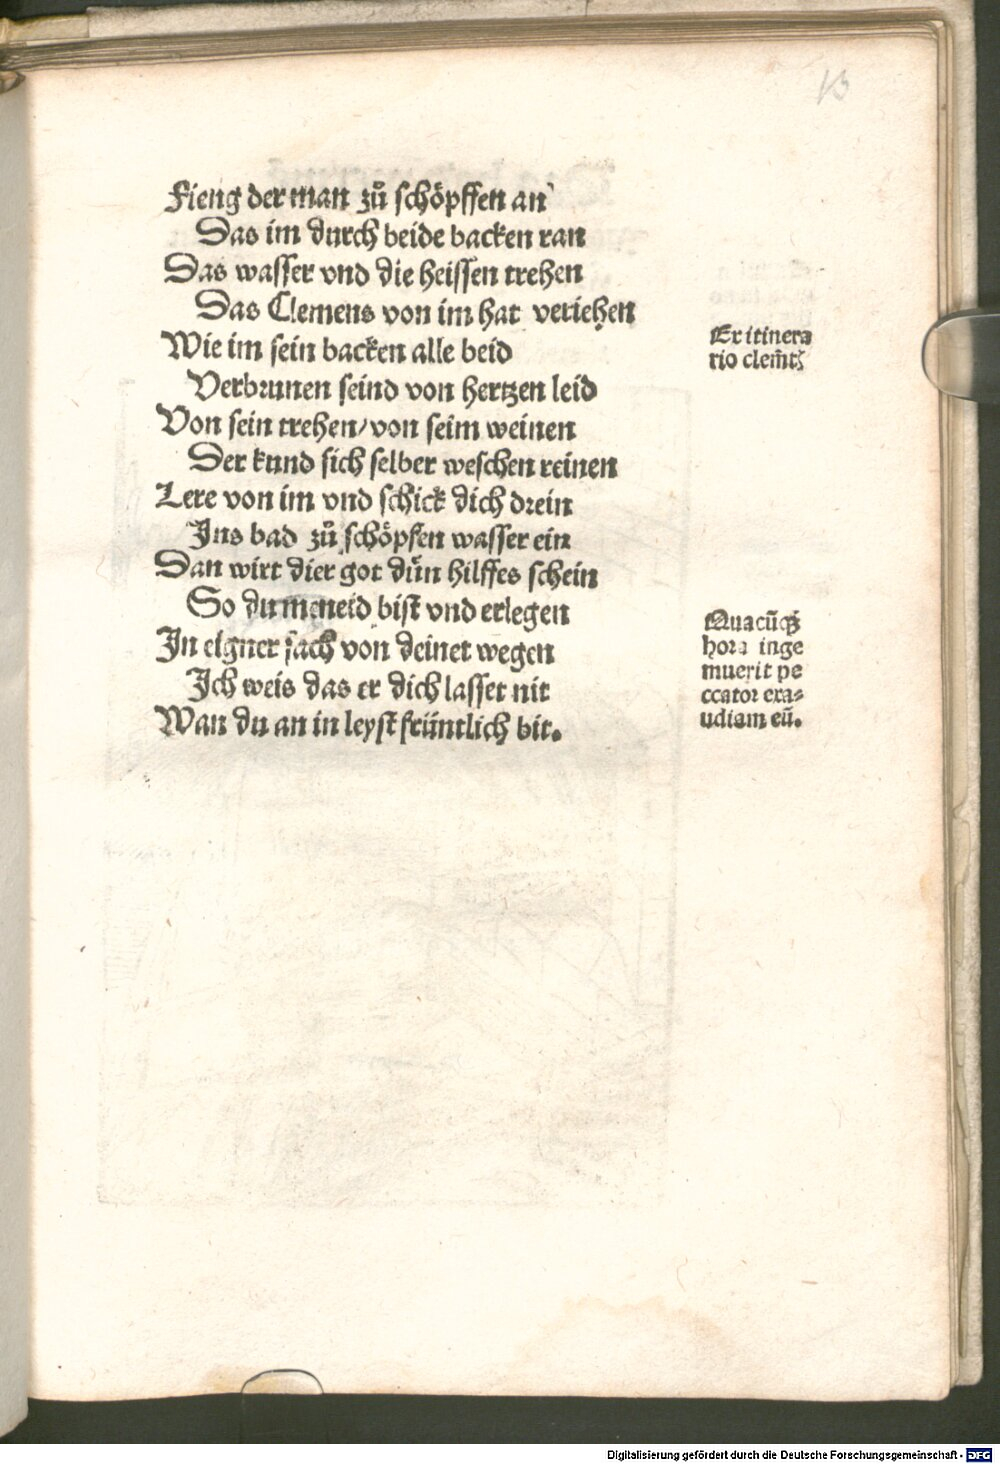 13
Fieng der man zů schöpffen an
Das im durch beide backen ran
Das wasser vnd die heissen trehen
Das Clemens von im hat veriehen
Wie im sein backen alle beid
Verbrunnen seind von hertzen leid
Von sein trehen/von seim weinen
Der kund sich selber weschen reinen
Lere von im vnd schick dich drein
Ins bad zů schöpfen wasser ein
Dan wirt dier got dün hilffes schein
So du meneid bist vnd erlegen
In eigner sach von deinet wegen
Ich weis das er dich lasset nit
Wan du an in leyst früntlich bit.
Ex itinera
rio clem̄tꝭ
Quacūqꝫ
hora inge
muerit pe
ccator exa⸗
udiam eū.
Digitalisierung gefördert durch die Deutsche Forschungsgemeinschaft - DFG